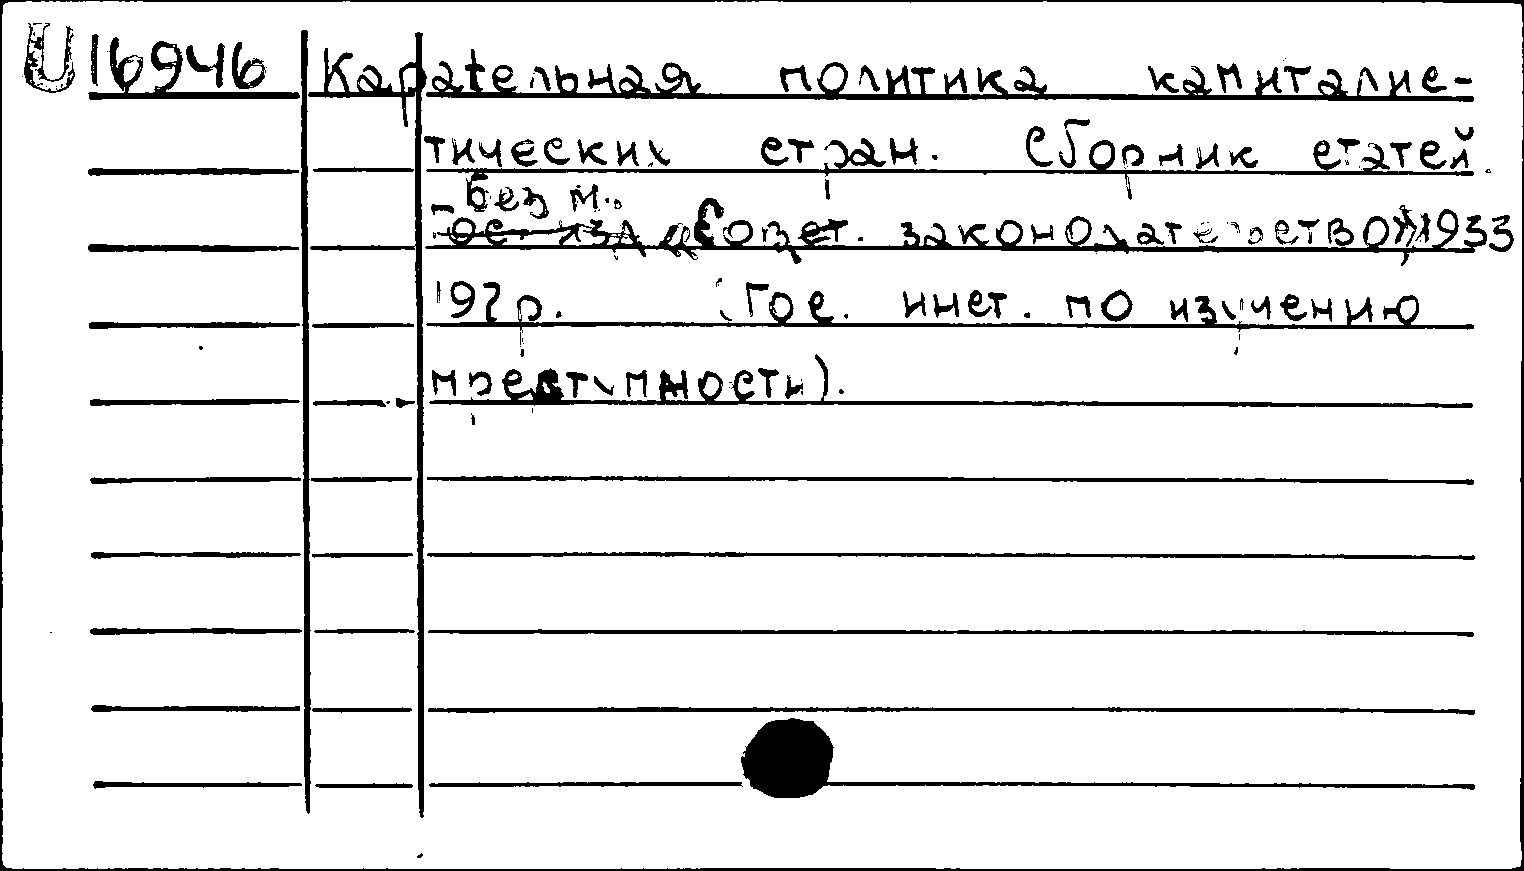 U 16946 Карательная политика капиталис-
тических стран. Сборник статей.
- Без м.,
Совет. законодательство, 1933
197 р. (Гос. инст. по изучению
преступности).